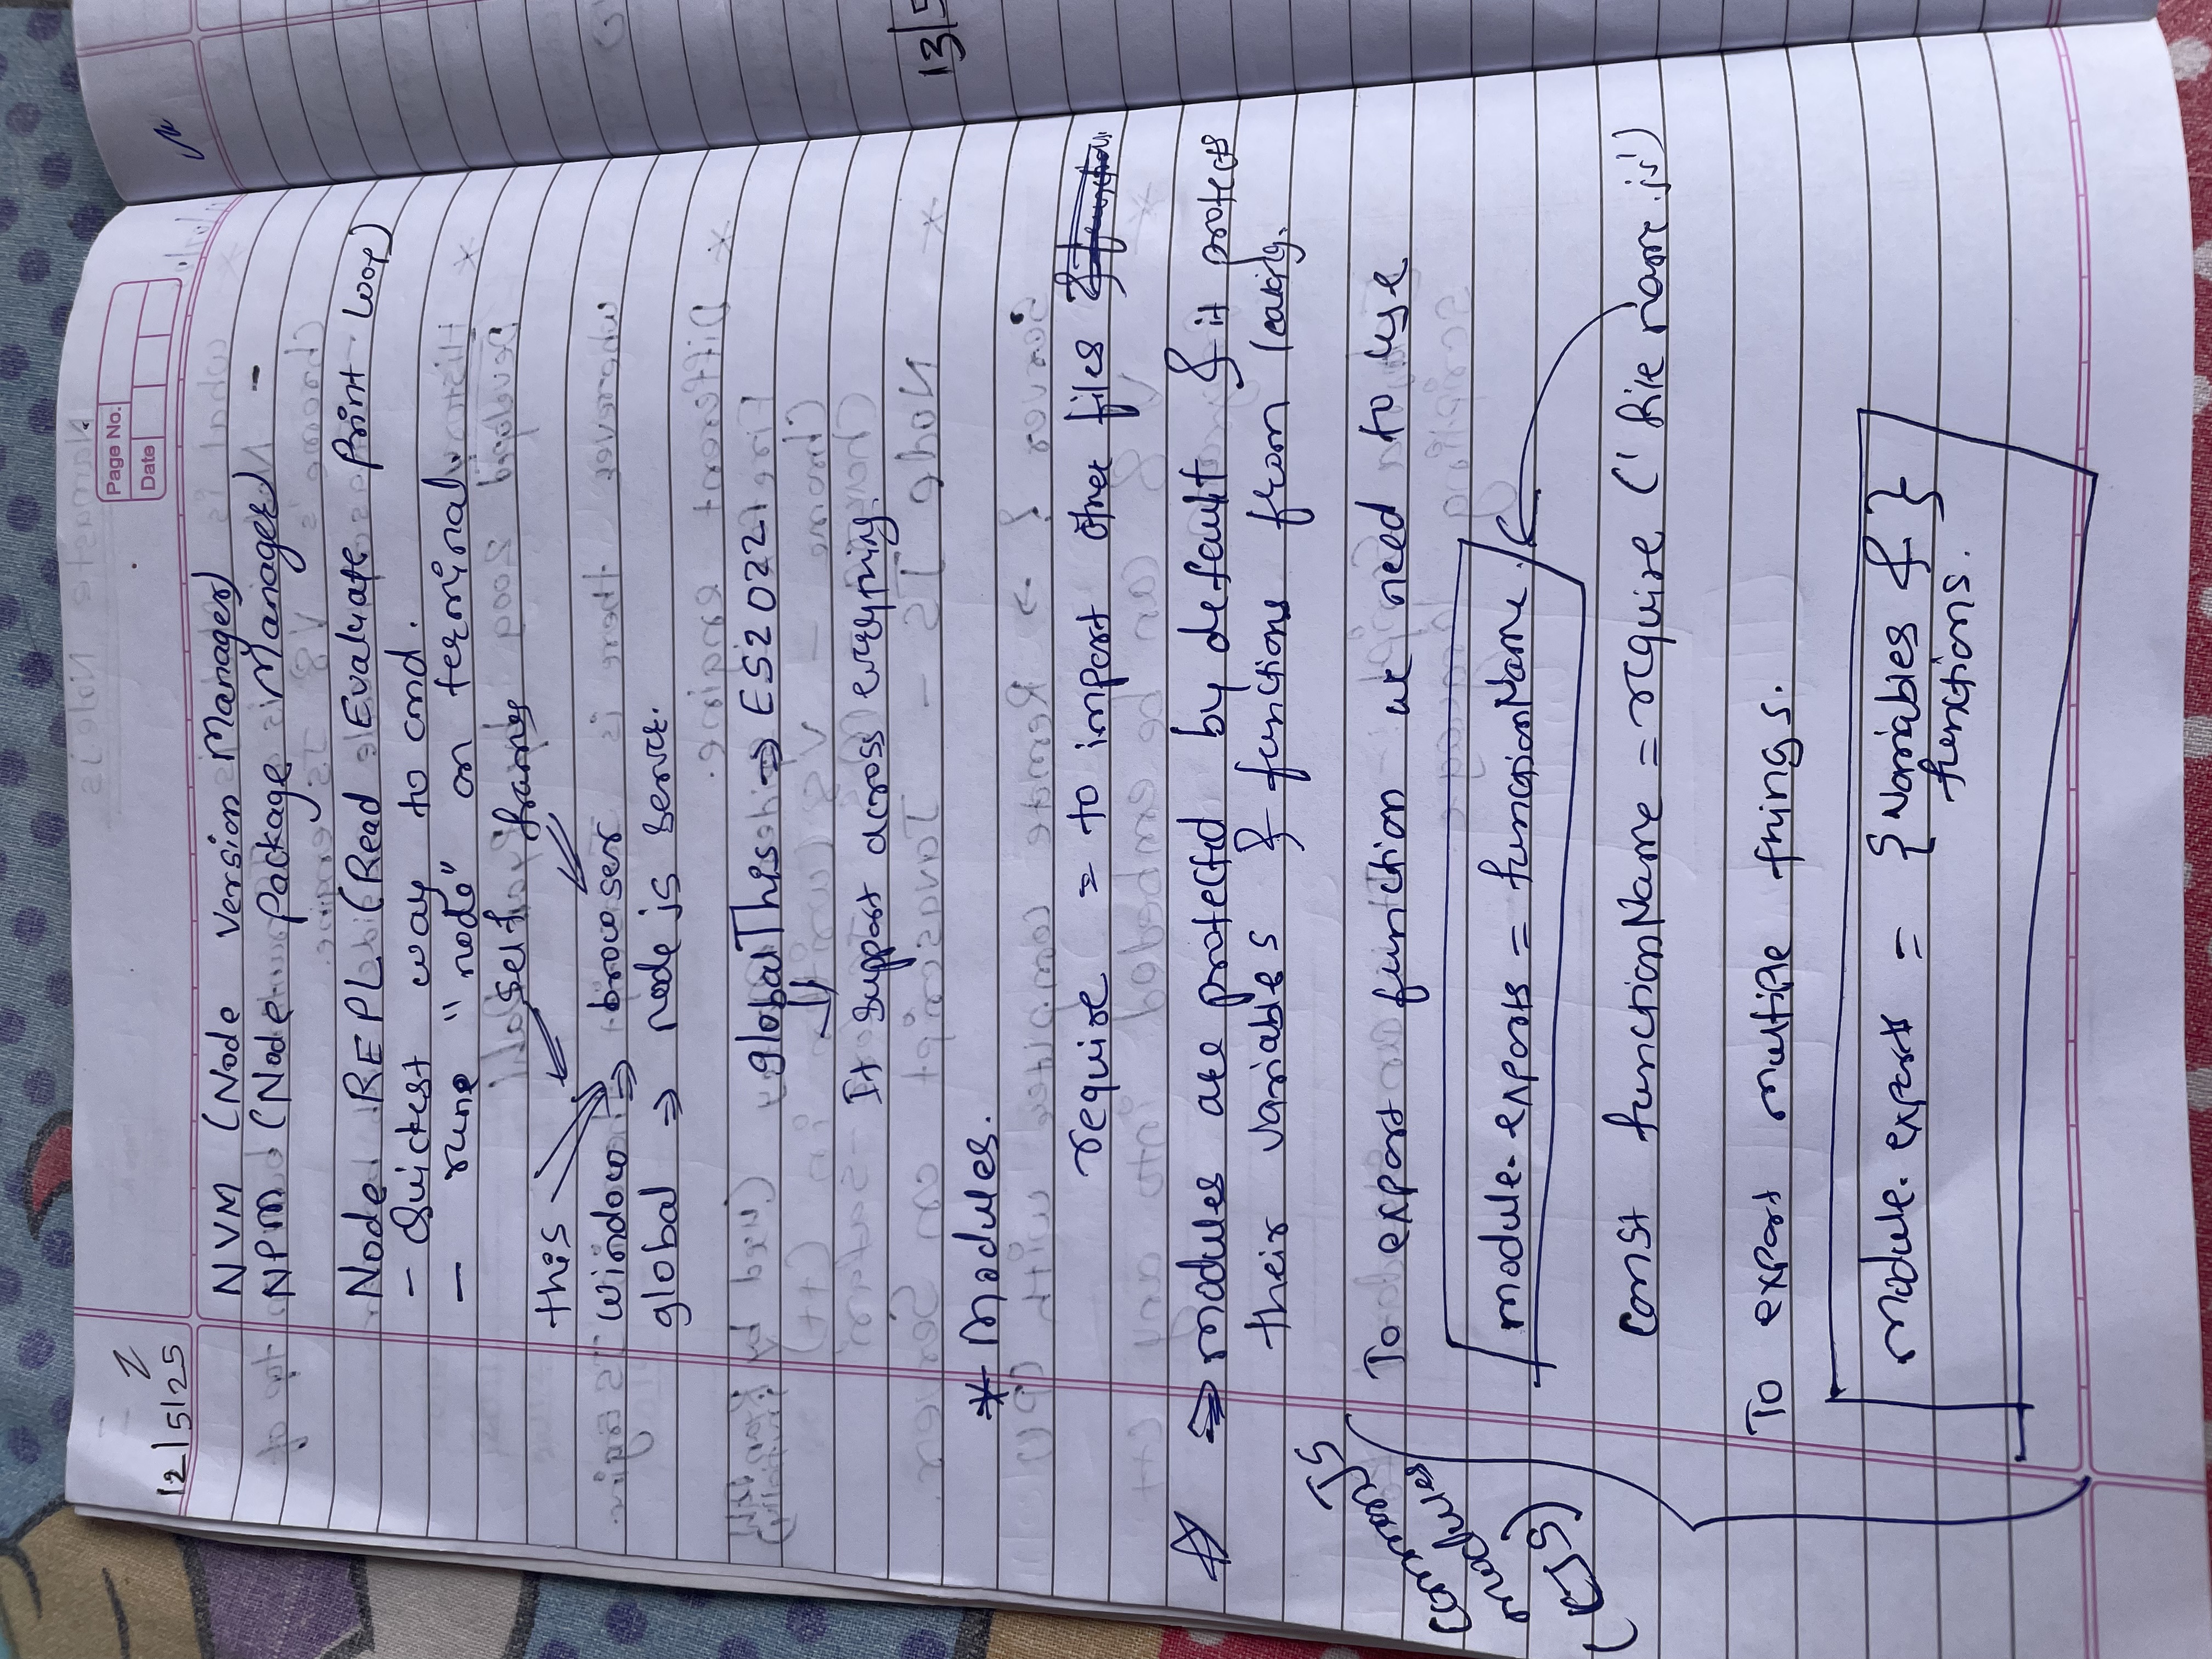 Page No.
Date
2
12/5/25
NVM (Node Version Manager)
NPM (Node Package Manager) -
Node REPL (Read Evaluate Print Loop)
- Quickest way to cmd.
- rune "node" on terminal.
self frames
this
window ⇒ browser
global ⇒ node js server.
globalThis ⇒ ES2022
It support across everything.
* Modules.
require = to import other files & function
⇒ modules are protected by default & it protects
their variables & functions from leaking.
CommonJS
modules
(CJS)
To export function we need to use
module.exports = functionName.
const functionName = require ('file name.js')
To export multiple things.
module.exports = {variables & }
functions.
13/5